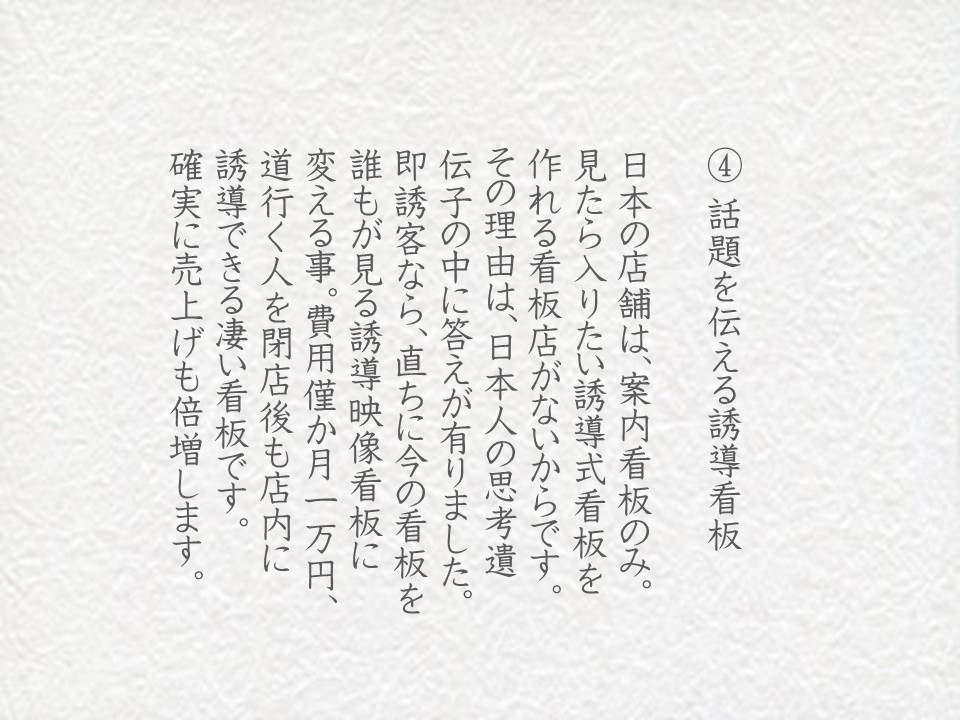 ④ 話題を伝える誘導看板
日本の店舗は、案内看板のみ。
見たら入りたい誘導式看板を
作れる看板店がないからです。
その理由は、日本人の思考遺
伝子の中に答えが有りました。
即誘客なら、直ちに今の看板を
誰もが見る誘導映像看板に
変える事。費用僅か月一万円、
道行く人を閉店後も店内に
誘導できる凄い看板です。
確実に売上げも倍増します。